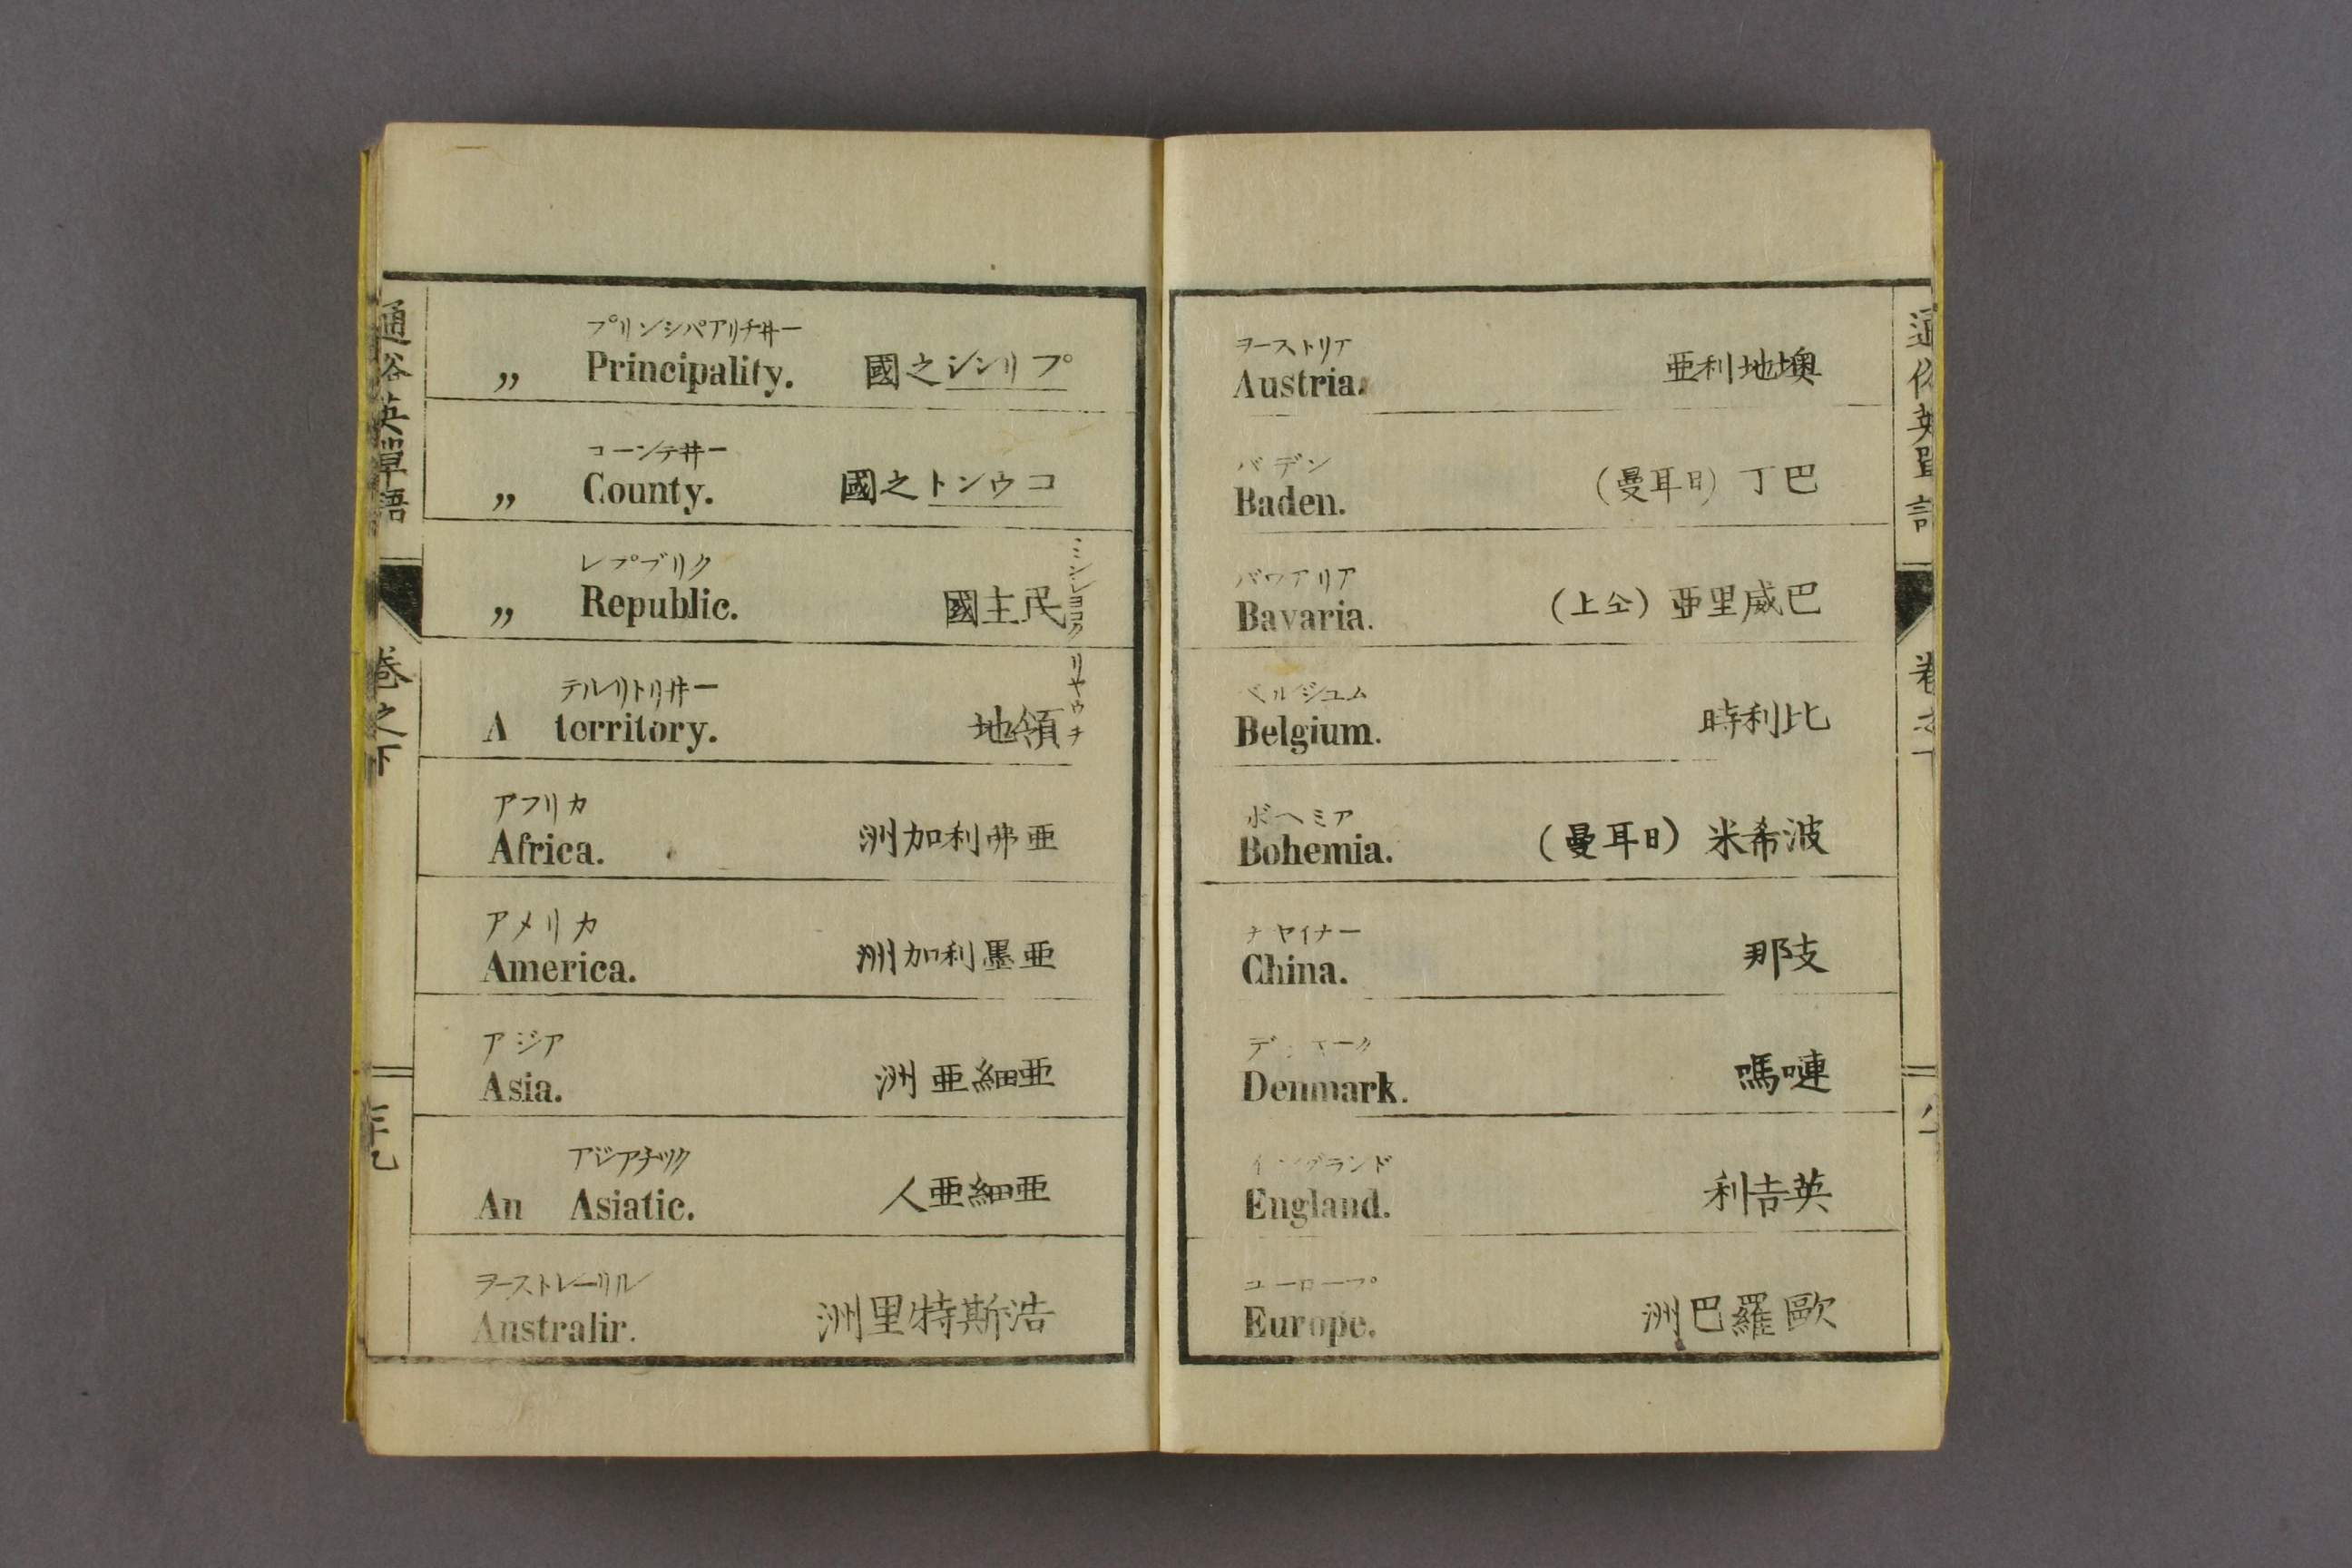 通俗英單語
卷之下
プリンシパアリチヰー
„ Principality. プリンシ之國
コーンテヰー
„ County. コウント之國
レプブリク
„ Republic. 民主國
ミンシヨコク
テルリトリヰー
A territory. 領地
リヤウチ
アフリカ
Africa. 亜弗利加洲
アメリカ
America. 亜墨利加洲
アジア
Asia. 亜細亜洲
アジアチツク
An Asiatic. 亜細亜人
ヲーストレーリル
Australir. 浩斯特里洲
ヲーストリア
Austria. 墺地利亜
バデン
Baden. 巴丁 (日耳曼)
バワアリア
Bavaria. 巴威里亜 (仝上)
ベルジユム
Belgium. 比利時
ボヘミア
Bohemia. 波希米 (日耳曼)
チヤイナー
China. 支那
Denmark. 嗹嗎
イングランド
England. 英吉利
ユーロープ
Europe. 歐羅巴洲